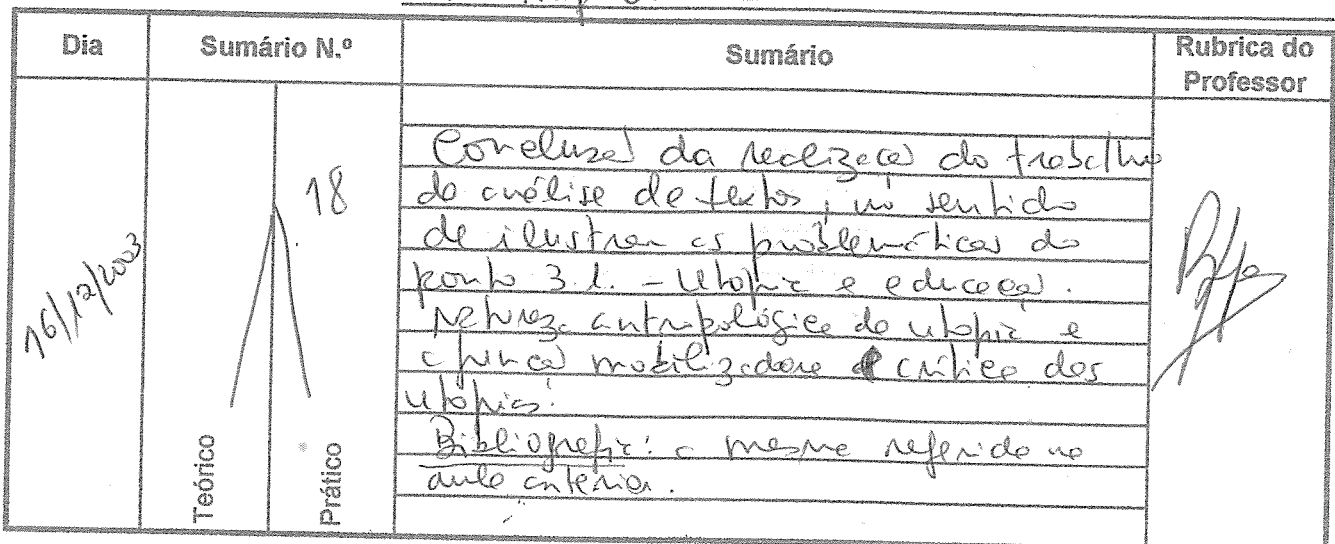 Dia
Sumário N.º
Sumário
Rubrica do
Professor
16/12/2003
18
Teórico
Prático
Conclusão da realização do trabalho
de análise de textos, no sentido
de ilustrar as problemáticas do
ponto 3.1. - Utopia e educação.
Natureza antropológica da utopia e
a função mobilizadora e crítica das
utopias.
Bibliografia: a mesma referida na
aula anterior.